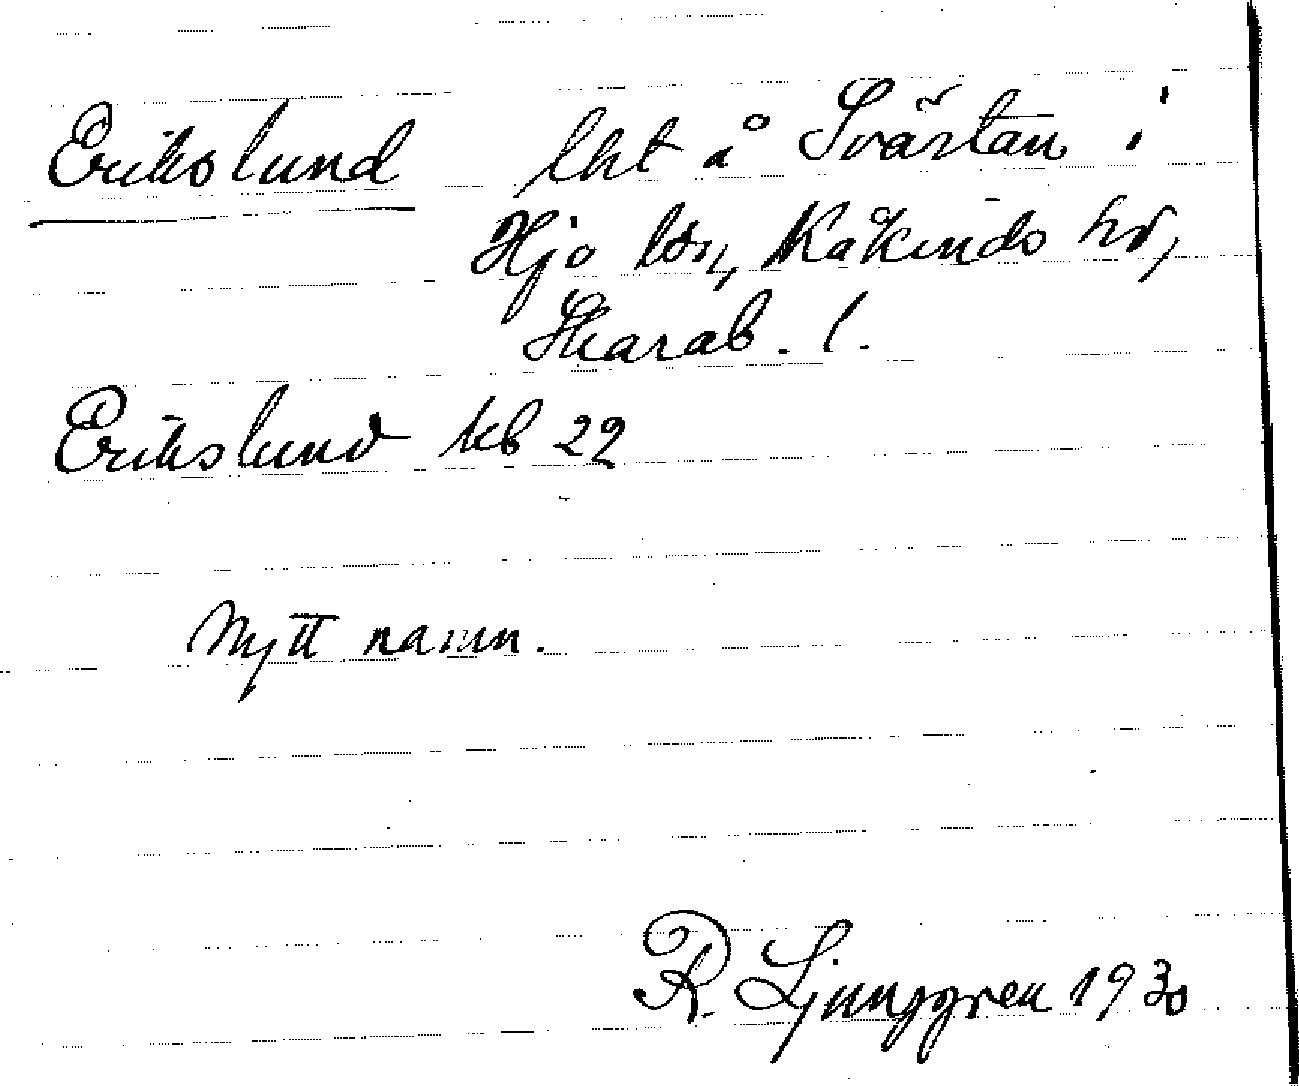 Erikslund lht å Svärtan i
Hjo lsn, Kåkinds hd,
Skarab. l.
Erikslund kb 22
Nytt namn.
R. Ljunggren 1930